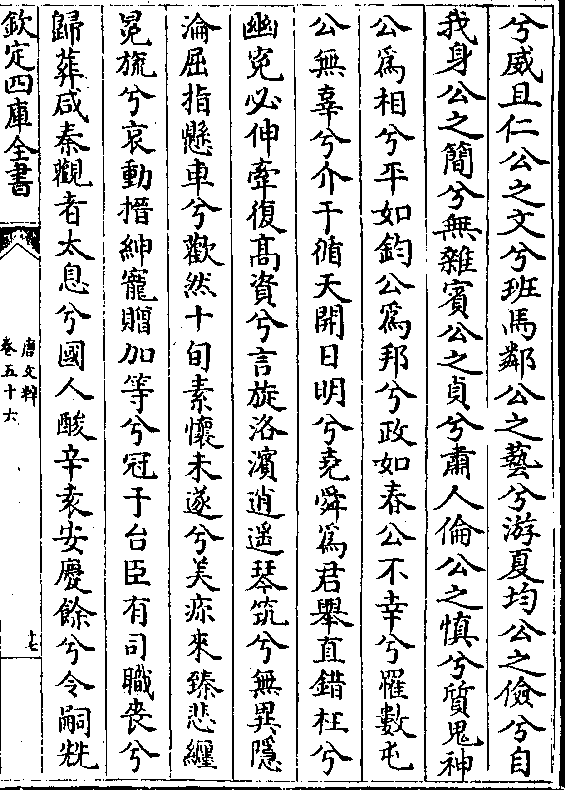 兮威且仁公之文兮班馬鄰公之藝兮游夏均公之儉兮自
我身公之簡兮無雜賓公之貞兮肅人倫公之慎兮質鬼神
公爲相兮平如鈞公爲邦兮政如春公不幸兮罹數屯
公無辜兮介于循天開日明兮堯舜爲君舉直錯枉兮
幽寃必伸牽復髙資兮言旋洛濱逍遥琴筑兮無異隱
淪屈指懸車兮歡然十旬素懷未遂兮美疢來臻悲纒
冕旒兮哀動搢紳寵贈加等兮冠于台臣有司職喪兮
歸葬咸秦觀者太息兮國人酸辛袁安慶餘兮令嗣兟
欽定四庫全書
唐文粹
卷五十六
十七